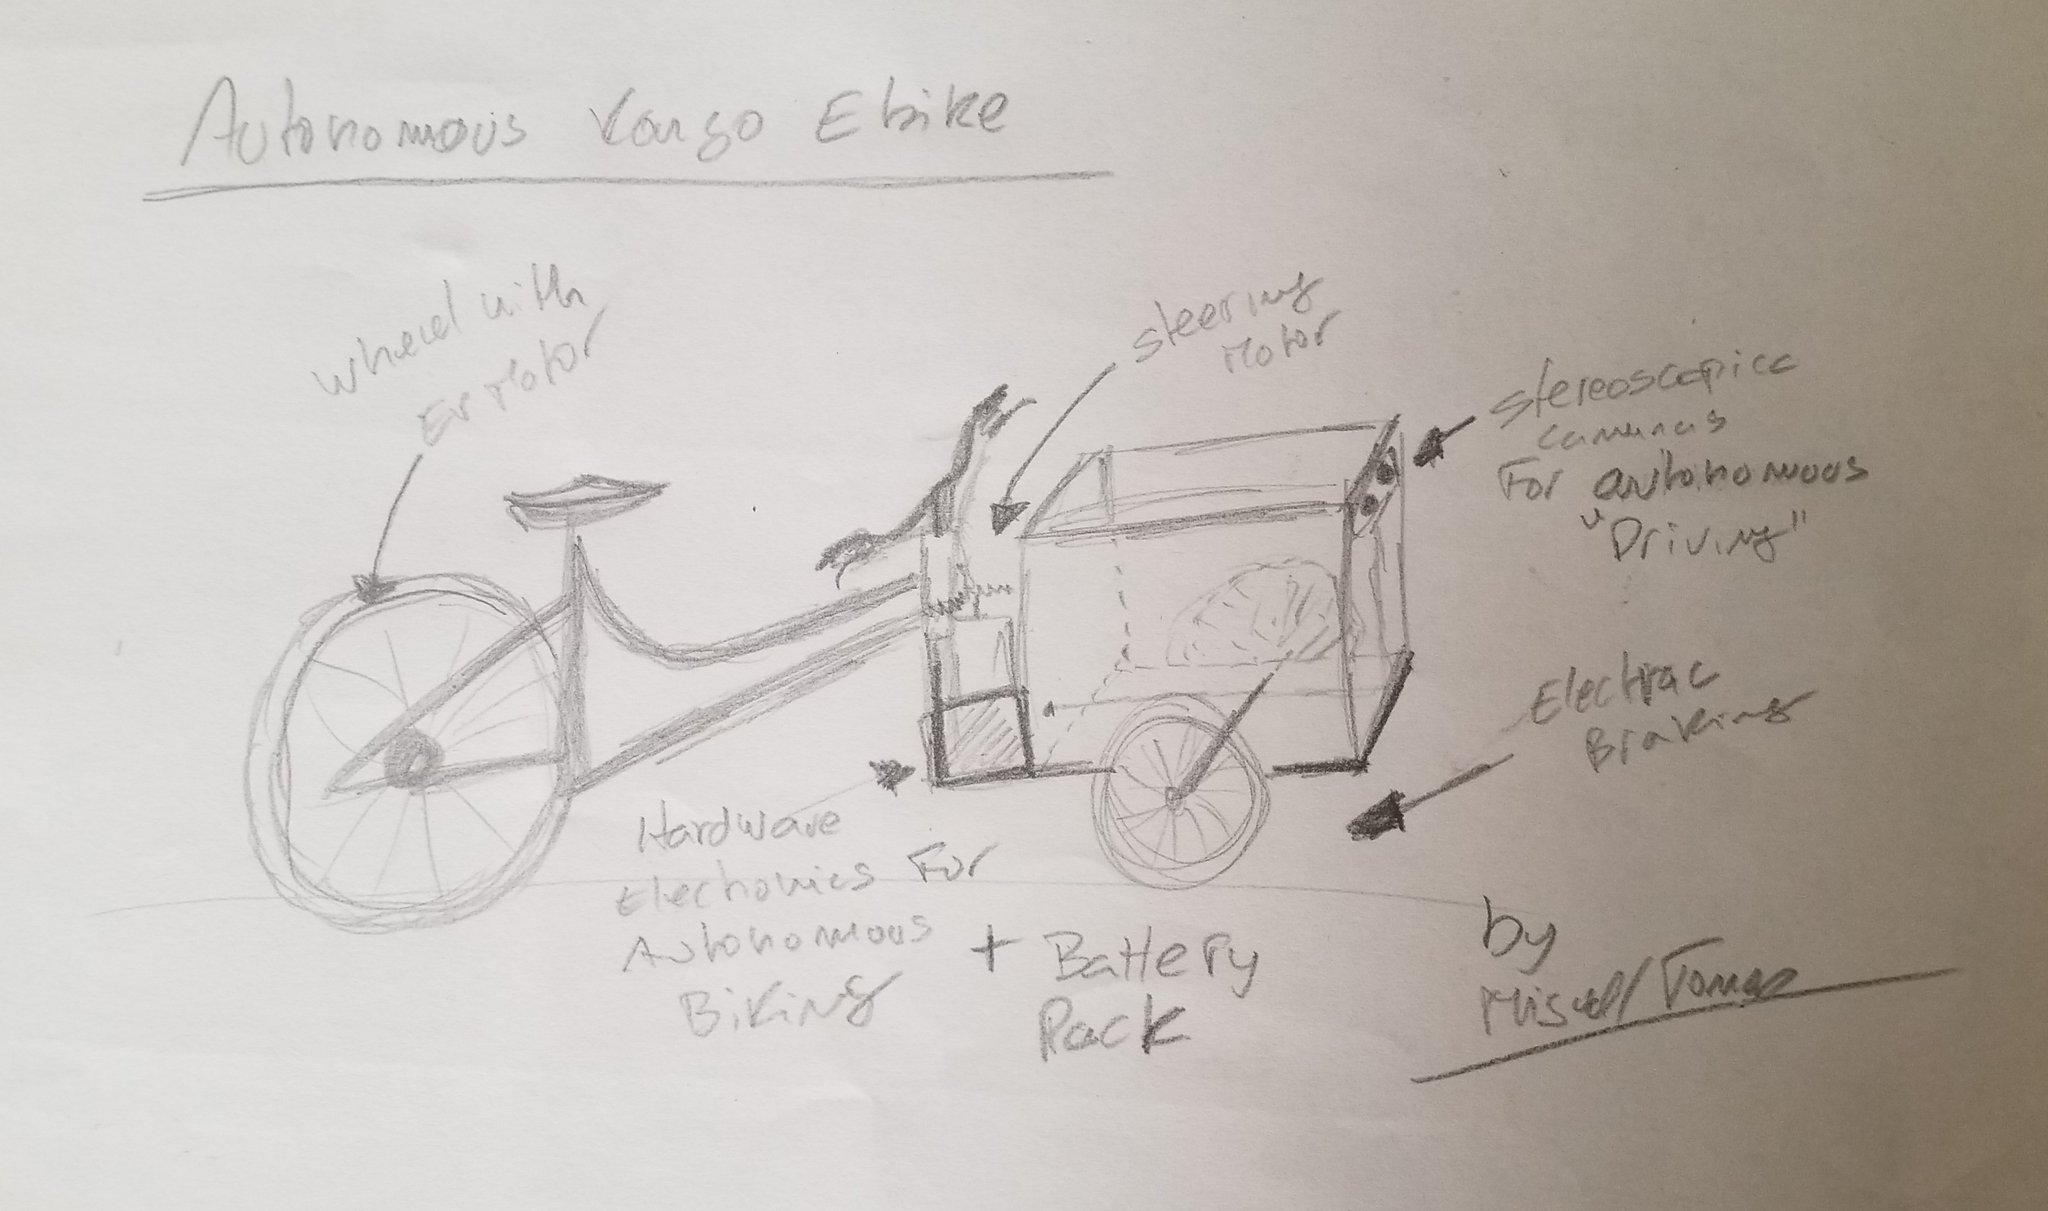 Autonomous Kargo Ebike
wheel with
Motor
steering
Motor
stereoscopicc
cameras
For autonomous
"Driving"
Electric
Braking
Hardware
Electronics For
Autonomous
Biking
+ Battery
Pack
by
Miguel/Tomas